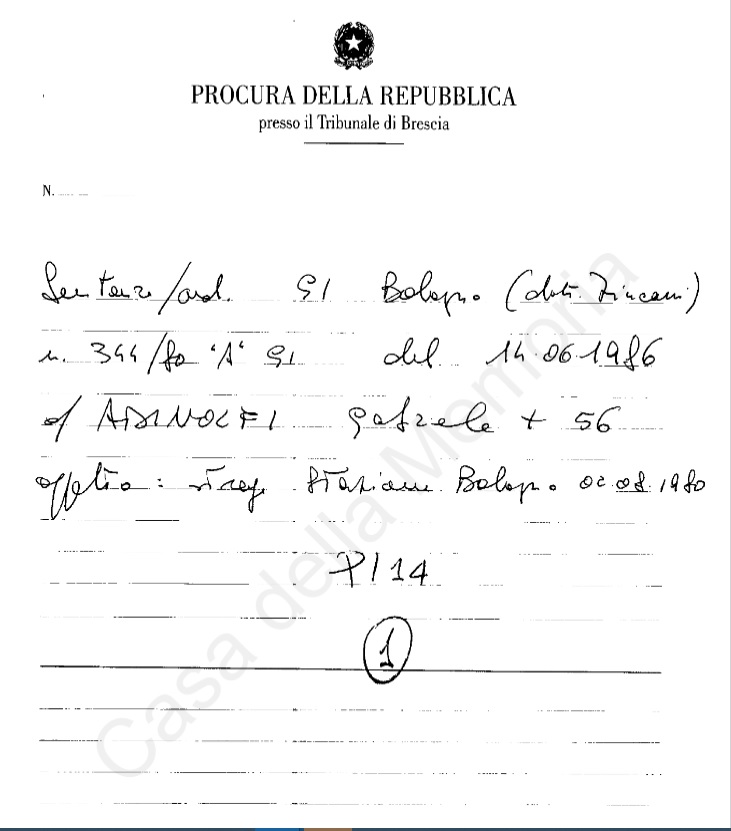 PROCURA DELLA REPUBBLICA
presso il Tribunale di Brescia
N.
Sentenza/ord. GI Bologna (dott. Zincani)
n. 344/80 "A" GI del 14.06.1986
c/ ADINOLFI Gabriele + 56
oggetto: strage Stazione Bologna 02.08.1980
P/14
1
Casa della Memoria